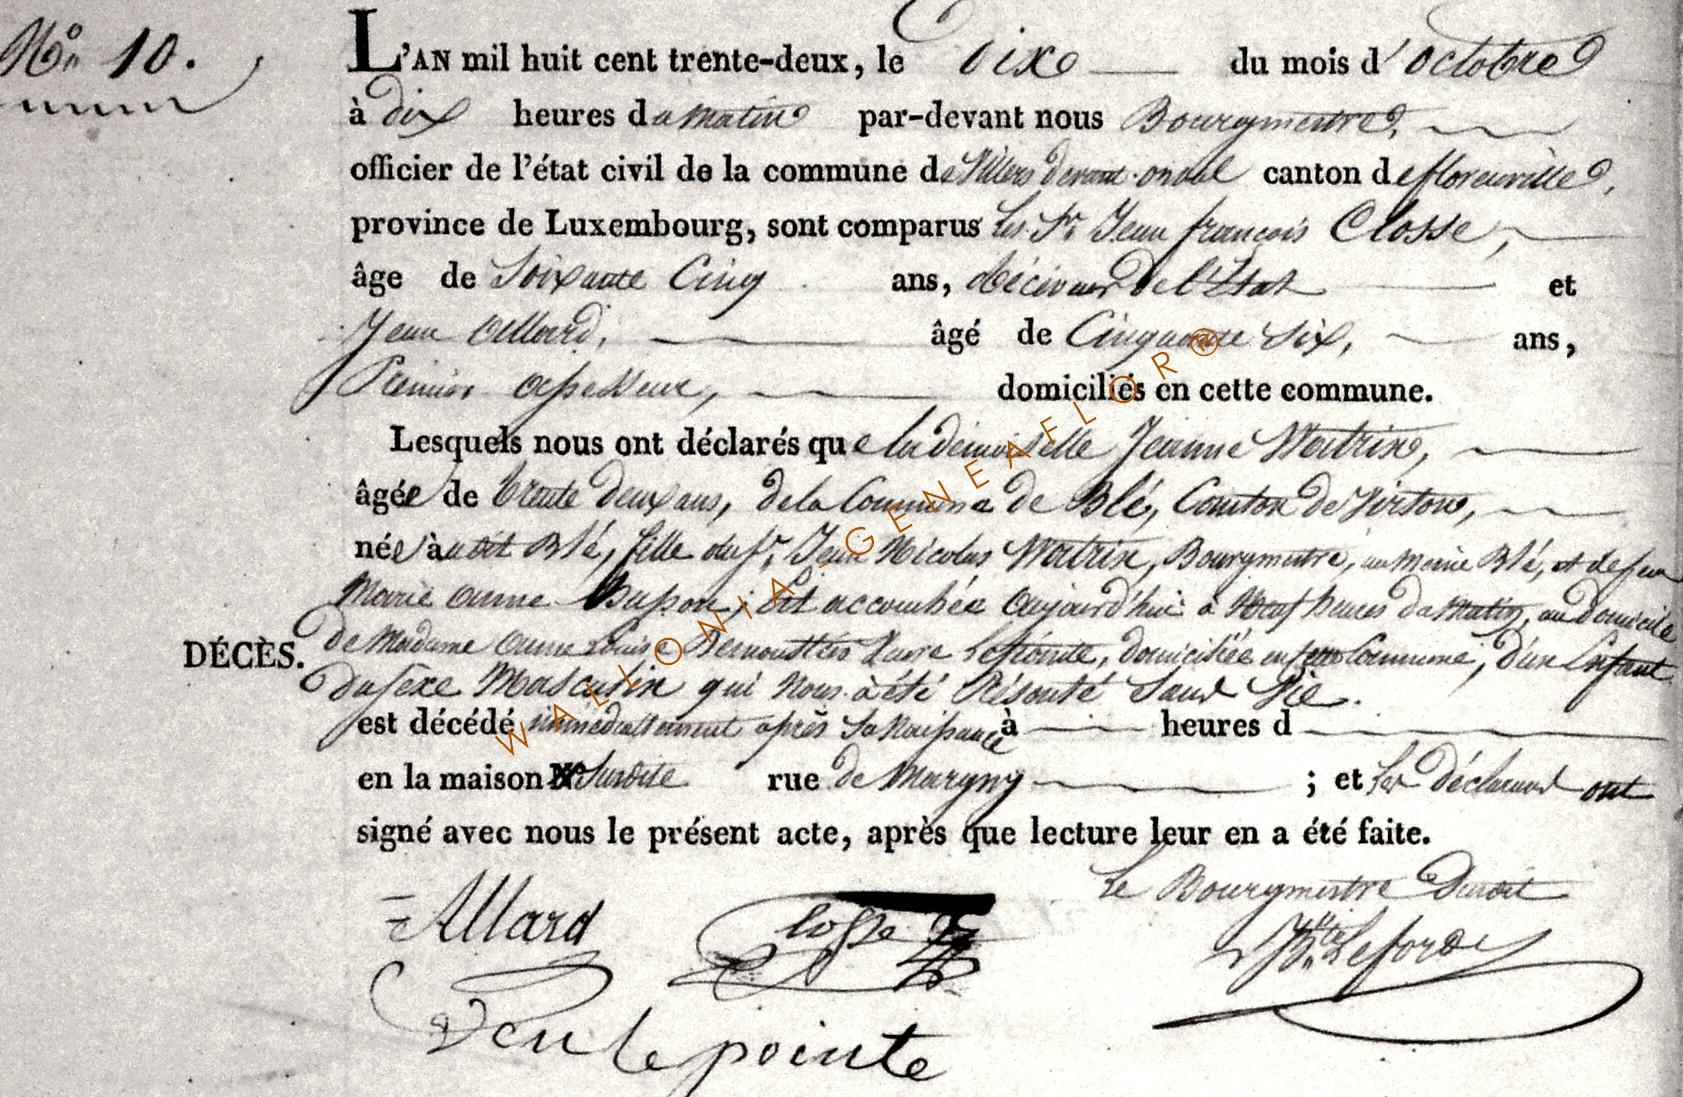 N.º 10.
L'AN mil huit cent trente-deux, le dixe du mois d'octobre
à dix heures du matin par-devant nous Bourgmestre,
officier de l'état civil de la commune de Villers devant orval canton de florenville,
province de Luxembourg, sont comparus les Sr. Jean françois Closse,
âge de Soixante Cinq ans, Réceveur de l'Etat et
Jean Allard, âgé de Cinquante Six, ans,
Premier assesseur, domiciliés en cette commune.
Lesquels nous ont déclarés que la demoiselle Jeanne Watrin,
âgée de trente deux ans, de la Commune de Blé, Canton de Virton,
née audit Blé, fille du Sr. Jean Nicolas Watrin, Bourgmestre, au meme Blé, et de feu
Marie Anne Busson; Est accouchée aujourd'hui à Neuf heures du Matin, au domicile
de Madame Anne Louise Vve Lepointe, domiciliée en cette Commune, d'un Enfant
DÉCÈS.
du sexe Masculin qui nous a été Présenté Sans Vie.
est décédé immediattement après Sa Naissance à heures d
en la maison Nº Susdite rue de Margny ; et les déclarans ont
signé avec nous le présent acte, après que lecture leur en a été faite.
Le Bourgmestre Susdit
Allard Closse Leforde
Lepointe
WALLONIA - GENEAFLOR®